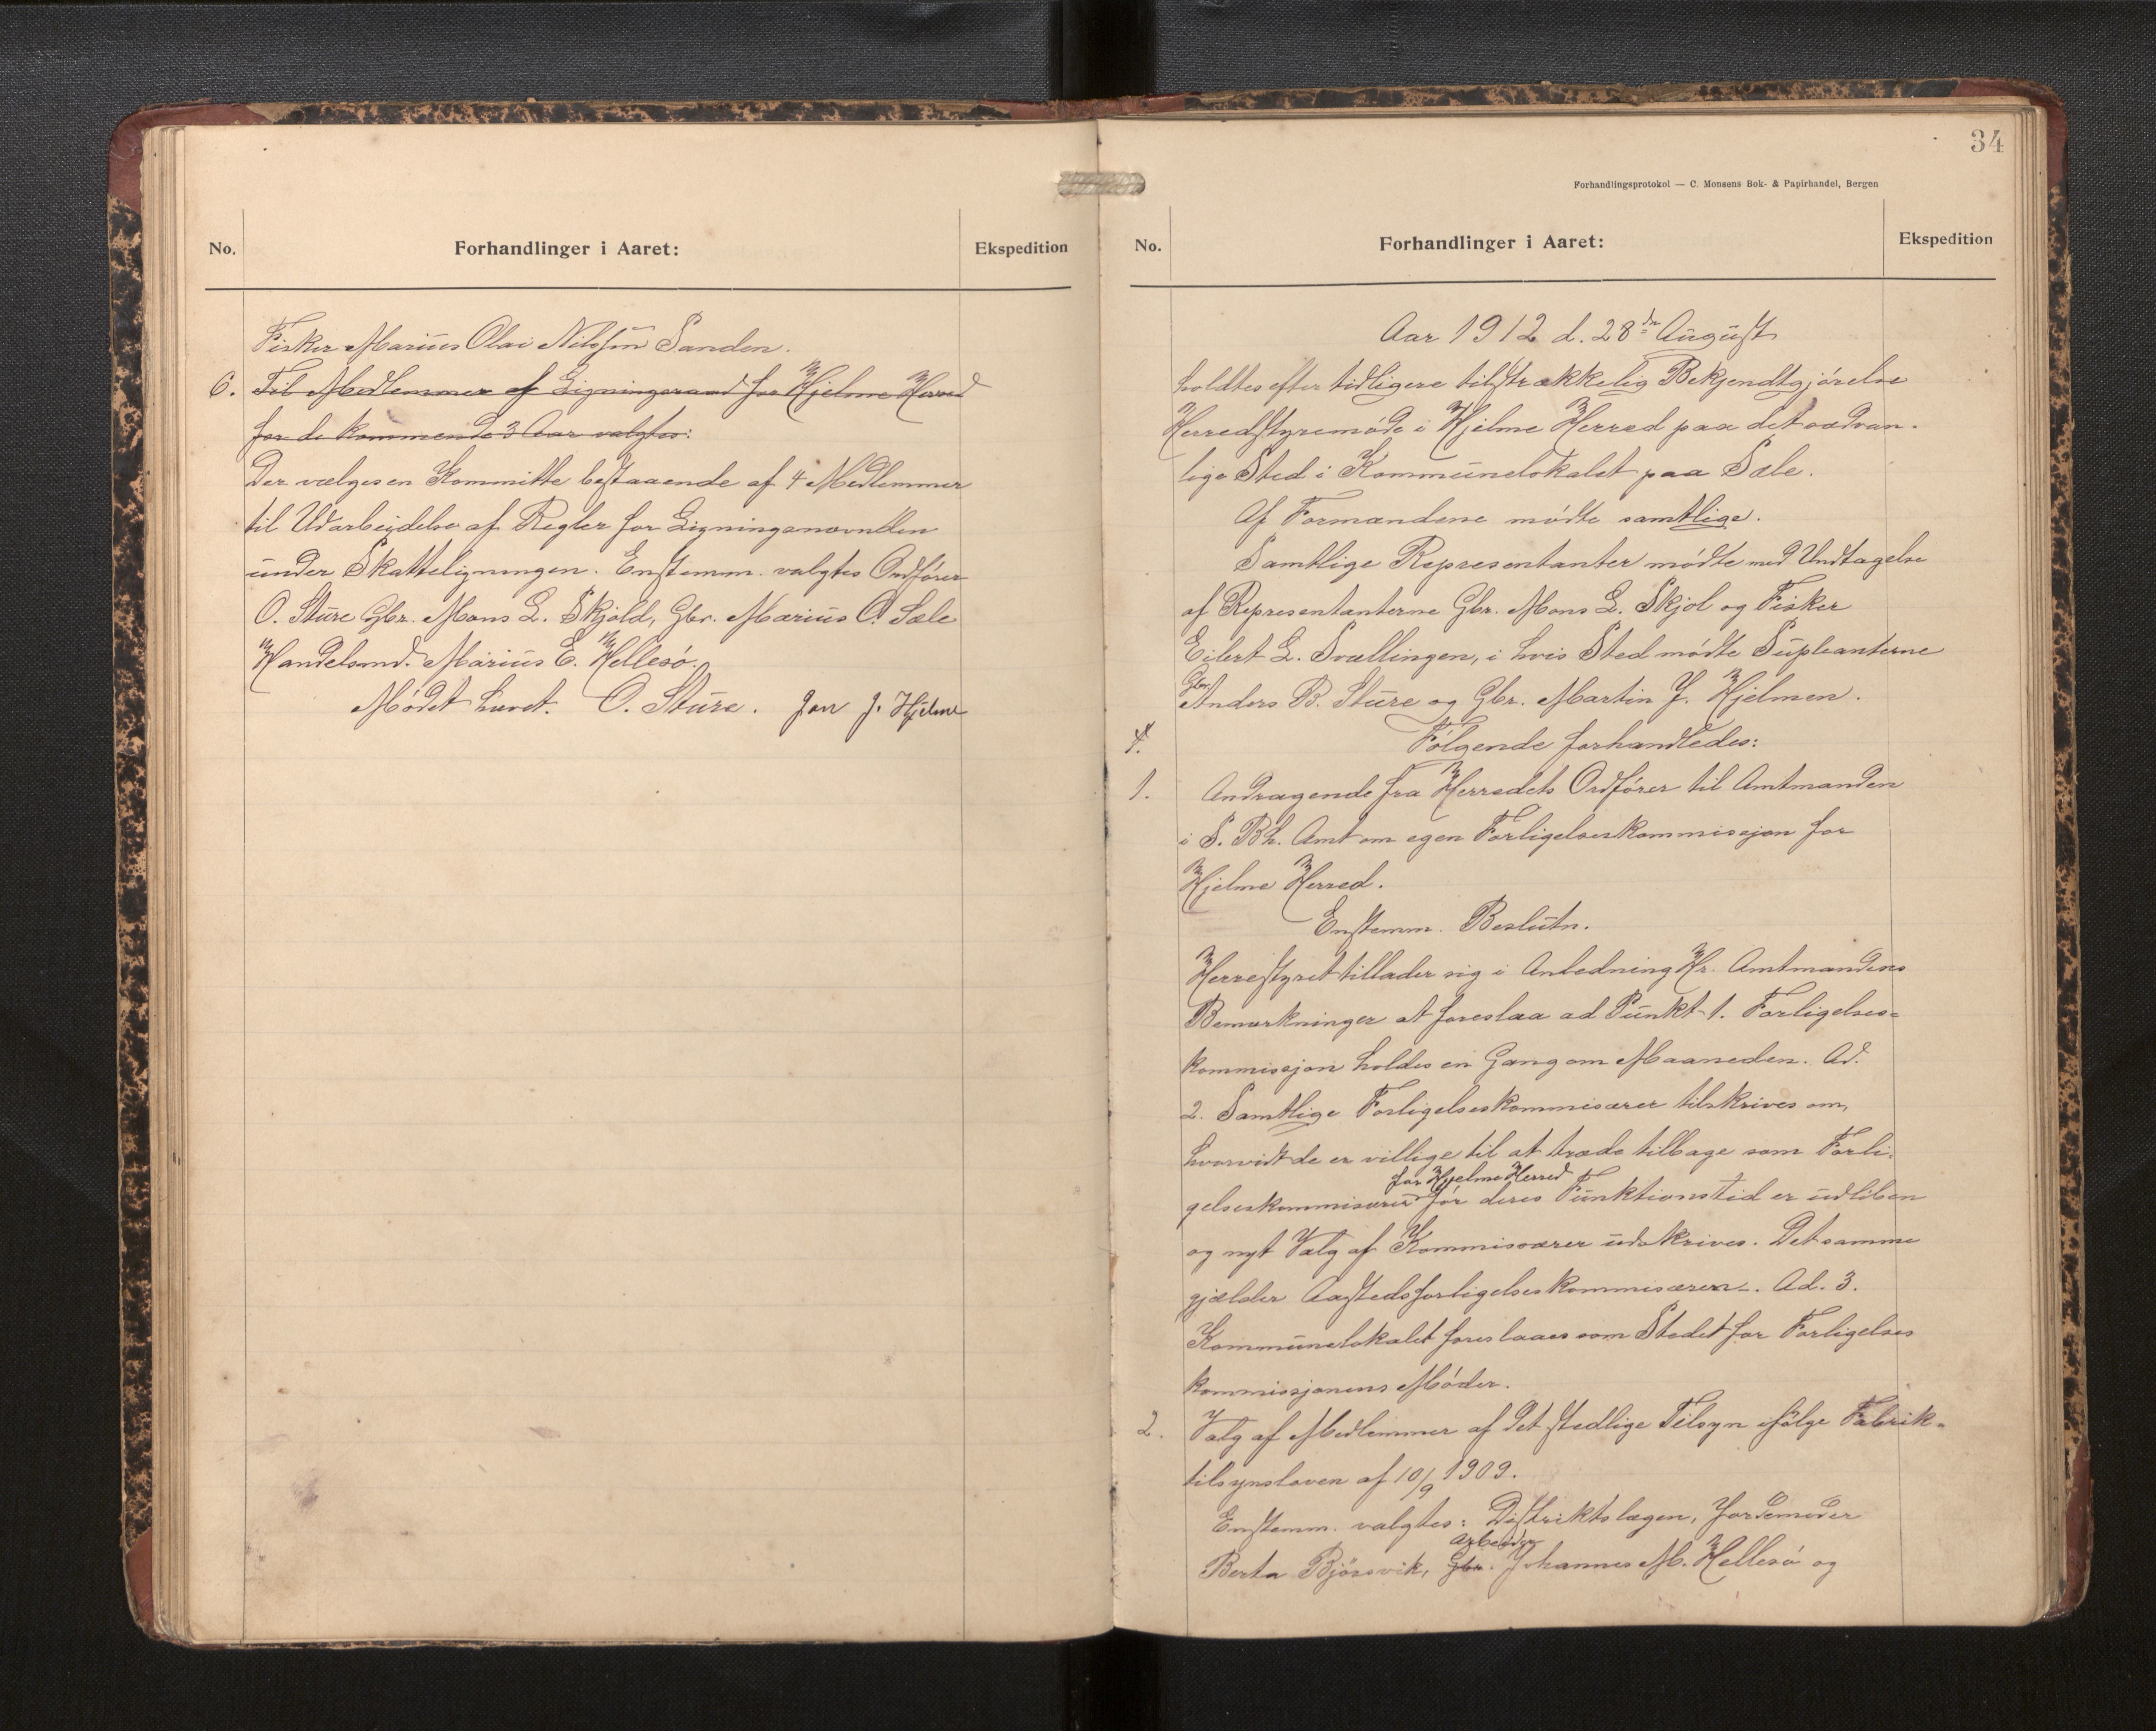 No.
Forhandlinger i Aaret:
Ekspedition
Fisker Marius Olai Nilssen Sanden.
6. Til Medlemmer af Ligningsraad for Hjelme Herred
for de kommende 3 Aar valgtes:
Der vælges en Kommitte bestaaende af 4 Medlemmer
til Udarbeidelse af Regler for Ligningsnævnden
under Skatteligningen. Enstemm. valgtes Ordfører
O. Sture Gbr. Mons L. Skjold, Gbr. Marius O. Sæle
Handelsmd. Marius E. Hellesø.
Mødet hævet. O. Sture. Jon J. Hjelme
34
Forhandlingsprotokol — C. Monsens Bok- & Papirhandel, Bergen
No.
Forhandlinger i Aaret:
Ekspedition
Aar 1912 d. 28de August
holdtes efter tidligere tilstrækkelig Bekjendtgjørelse
Herredstyremøde i Hjelme Herred paa det sædvan-
lige Sted i Kommunelokalet paa Sæle.
Af Formændene mødte samtlige.
Samtlige Representanter mødte med Undtagelse
af Representanterne Gbr. Mons L. Skjol og Fisker
Eilert L. Svællingen, i hvis Sted mødte Supleanterne
Gbr. Anders B. Sture og Gbr. Martin J. Hjelmen.
Følgende forhandledes:
1. Andragende fra Herredets Ordfører til Amtmanden
i S. Bh. Amt om egen Forligelseskommissjon for
Hjelme Herred.
Enstemm. Beslutn.
Herrestyret tillader sig i Anledning Hr. Amtmandens
Bemærkninger at foreslaa ad Punkt 1. Forligelses-
kommissjon holdes en Gang om Maaneden. Ad.
2. Samtlige Forligelseskommisærer tilskrives om,
hvorvidt de er villige til at træde tilbage som Forli-
for Hjelme Herred
gelseskommisærer før deres Funktionstid er udløben
og nyt Valg af Kommissærer udskrives. Det samme
gjælder Aastedsforligelseskommisærer. Ad. 3.
Kommunelokalet foreslaaes som Stedet for Forligelses
kommissjonens Møder.
2. Valg af Medlemmer af det stedlige Tilsyn ifølge Fabrik-
tilsynsloven af 10/9 1909.
Enstemm. valgtes: Distriktslægen, Jordemoder
Arbeider
Berta Bjørsvik, Gbr. Johannes M. Hellesø og